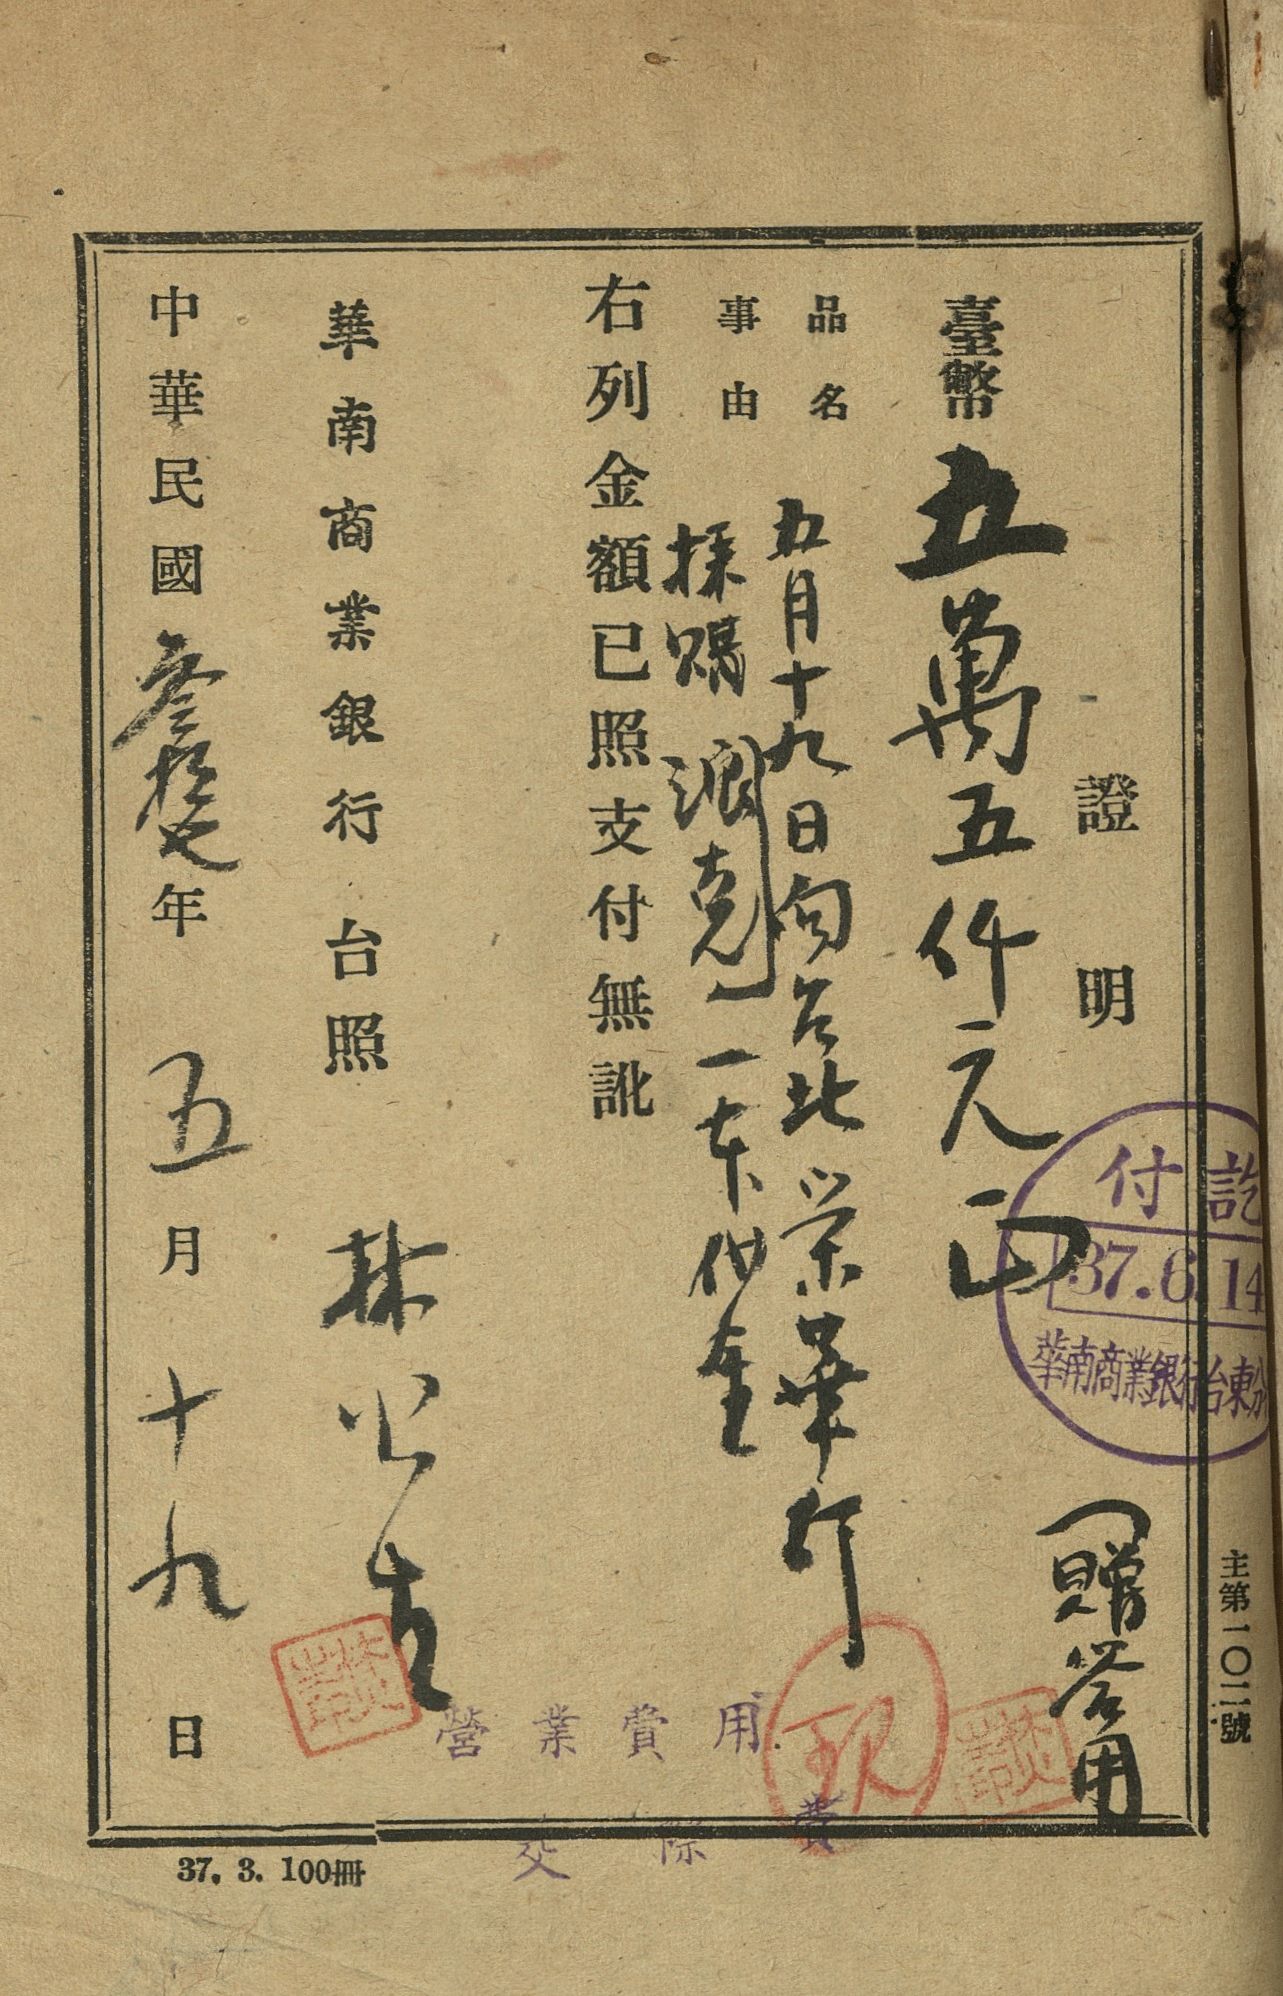 證明
臺幣五萬五仟元正
(贈答用
品名
事由
五月十九日向台北榮華行
採購派克一本代金
右列金額已照支付無訛
華南商業銀行 台照
林
中華民國叁拾七年 五月十九日
付訖
37.6.14
華南商業銀行台東分
主第一〇二號
營業費用
交際費
現
37. 3. 100冊